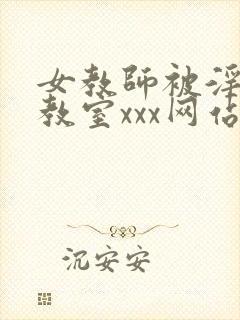 女教师被淫
教室xxx网站
沉安安